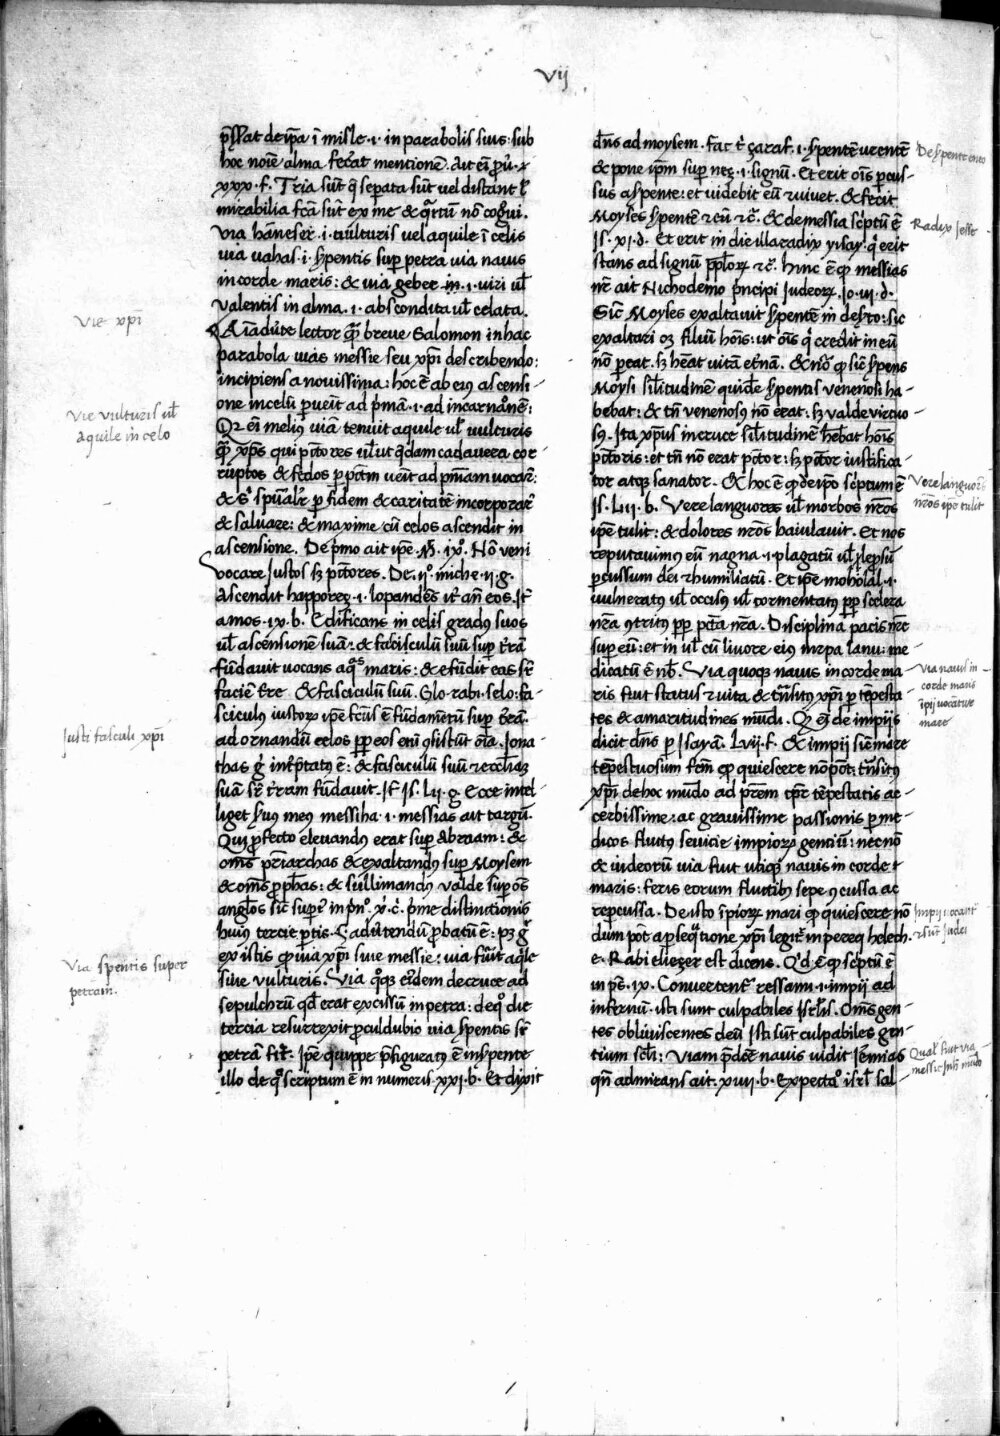 Vij
p̄ssat de ip̄a ī misle · ı · in parabolis suis · sub
hoc noīe alma fec̄at mentionē. Ait eī p̄u̇ · x
xxx · f. Tria sūt q̄ sep̄ata sūt vel distant l̄
mirabilia fc̄a sūt ex me & q̄rtū nō coḡui.
Via hāneser · i · vulturis vel aquile ī celis
via nahas · i · sp̄entis sup̄ petra via navis
in corde maris : & via geber · ı · viri ul̄
valentis in alma · ı · abscondita ul̄ celata.
Aīadūte lector q̄ breve Salomon in hac
parabola vias messie seu xp̄i describendo :
incipiens a novissima : hoc ē ab eius ascensi-
one in celū p̄ueīt ad p̄mā · ı · ad incarn̄onē :
Qr eī melius viā tenuit aquile ul̄ vulturis
q̄ xp̄s qui pc̄tores ul̄ut q̄dam cadavera cor
ruptos & fedos p̄ pc̄tm̄ ueīt ad pn̄iam vocar̄ :
& s̄ sp̄ual̄r p̄ fidem & caritatē incorporar̄
& salvare : & maxime cū celos ascendit in
ascensione. De p̄mo ait ip̄e M̄. ix°. Nō veni
vocare iustos sȝ pc̄tores. De · ii° · miche · ii · g.
Ascendit happoreȝ · ı · lopandēs it̄ an̄ eos. It̄
amos · ix · b. Edificans in celis gradus suos
ul̄ ascensionē suā : & fascisculū suū sup̄ t̄rā
fūdavit vocans aq̄s maris : & efūdit eas sr̄
faciē t̄re & fasciculū suū. Glo · rabi · selo : fa-
sciculus iustorȝ ip̄e fc̄us ē fūdam̄tū sup̄ t̄rā.
ad ornandū celos pp̄ eos enī ↄsistūt oīa. Jona
thas ḡ int̄p̄tatus ē : & fasciculū suū ⁊ eccl̄iaȝ
suā sr̄ t̄ram fūdavit. It̄ Is. Lii · g. Ecce intel-
liget s̄uus meus messiha · ı · messias ait targū.
Qui p̄fecto elevandus erat sup̄ abraam : &
om̄s pr̄iarchas & exaltandus sup̄ Moysem
& om̄s p̄ph̄as : & sullimandus valde sup̄ oēs
angl̄os sic̄ sup̄ in p̄n°. x̄ · c̄. p̄me distinctionis
huius tercie p̄tis. S; adūtendū p̄batum ē : pȝ ḡ
ex istis q̄ via xp̄i sive messie : via fūit aq̄le
sive vulturis. Via q°qȝ eīdem de cruce ad
sepulchrū qd̄ erat excissū in petra : de q° die
tercia resurrexit p̄culdubio via sp̄entis sr̄
petrā fit̄. Ip̄e quippe p̄figuratus ē in sp̄ente
illo de q° scriptum ē in numeris xxi · b. Et dixit
dn̄s ad moysem. fac t̄ çaraf. ı · sp̄entē urentē
& pone ip̄m sup̄ neȝ · ı · lignū. Et erit oīs p̄cus-
sus a sp̄ente : et videbit eū ⁊ vivet. & fecit
Moyses sp̄entē ⁊ eū ⁊c̄. & de messia sc̄ptū ē
Is · xi · d. Et erit in die illa radix yisay · q̄ erit
stans ad signū pp̄l̄orȝ ⁊c̄. hinc ē q̄ messias
nr̄ ait Nichodemo p̄ncipi Judeorȝ. Jo · iii · d.
Sic̄ Moyses exaltavit sp̄entē in desto : sic
exaltari oȝ filiū hoīs : ut oīs q̄ credit in eū
nō p̄eat. sȝ h̄eat vitā et̄nā. & nō q̄ sic̄ sp̄ens
Moysi sil̄itudinē quidē sp̄entis venenosi ha-
bebat : & tn̄ venenosus nō erat : sȝ valde virtuo
sus. Ita xp̄us in cruce sil̄itudinē h̄ebat hoīs
pc̄toris : et tn̄ nō erat pc̄tor : sȝ pc̄tor iustifica
tor atqȝ sanator. & hoc ē q̄ de ip̄o sc̄ptum ē
Is. Liii · b. Vere languores ul̄ morbos nr̄os
ip̄e tulit : & dolores nr̄os baiulavit. Et nos
reputavimus eū nagna · ı · plagatū ul̄ lep̄osū
p̄cussum dei ⁊ humiliatū. Et ip̄e moholal · ı ·
vulneratus ul̄ occisus ul̄ tormentatus pp̄ scelera
nr̄a ↄtritus pp̄ pc̄ta nr̄a. Disciplina pacis nr̄e
sup̄ eū : et in ul̄ cū livore eius nirpa lanu : me
dicatū ē nob̄. Via quoqȝ navis in corde ma
ris fuit status ⁊ vita & tn̄situs xp̄i p̄ tēpesta
tes & amaritudines mūdi. Qr eī de impiis
dicit dn̄s p̄ Isayā. Lvii · f. & impii sic̄ mare
tēpestuosum fc̄m q̄ quiescere nō pōt : tn̄situs
xp̄i de hoc mūdo ad p̄rem tp̄r tēpestatis ac-
cerbissime : ac gravissime passionis p̄ me-
dicos fluctus sevicie impiorȝ gentiū : necnō
& iudeorū via fuit utiqȝ navis in corde
maris : feris eorum fluctibus sepe ↄcussa ac
rep̄cussa. De isto īpiorȝ mari q̄ quiescere nō
dum pōt a p̄seq̄tione xp̄i legit̄ in pereq helech.
e. Rabi elieȝer est dicens. Q'd ē q̄ sc̄ptū ē
in p̄s. ix. Convertent̄ ressaim · ı · impii ad
infernū · isti sunt culpabiles isrl̄is. Om̄s gen-
tes obliviscentes deū Isti sūt culpabiles gen
tium sc̄li : Viam p̄dc̄ē navis vidit Ieremias
qn̄ admirans ait. xiiii · b. Expectat° isrl̄ sal
Vie xp̄i
Vie vulturis ul̄
aquile in celo
Justi fasciculi xp̄i
Via sp̄entis super
petram.
De sp̄ente eneo
Radix Jesse
Vere languores
nr̄os ip̄e tulit
Via navis in
corde maris
īpii vocātur
mare
Impii vocant̄
⁊ sūt iudei
Qual̄ fuit via
messie in h̄ mūdo